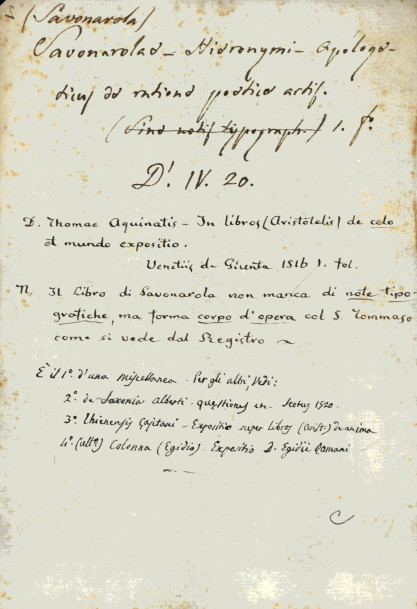 (Savonarola)
Savonarolae - Hieronymi - Apologe-
ticus de ratione poeticae artis.
(Sine notis typograph.) 1. fo.
D'. IV. 20.
D. Thomae Aquinatis - In libros (Aristotelis) de celo
et mundo expositio.
Venetiis de Giunta 1516 1. fol.
N. Il Libro di Savonarola non manca di note tipo-
grafiche, ma forma corpo d'opera col S. Tommaso
come si vede dal Registro ~
È il 1º. d'una miscellanea - Per gli altri, Vedi:
2º. de Saxonia Alberti - questiones in. Scotus 1520.
3º. Thienensis Gajetani - Expositio super libros (Arist.) de anima
4º. (ultº.) Colonna (Egidio) - Expositio D. Egidii Romani
C